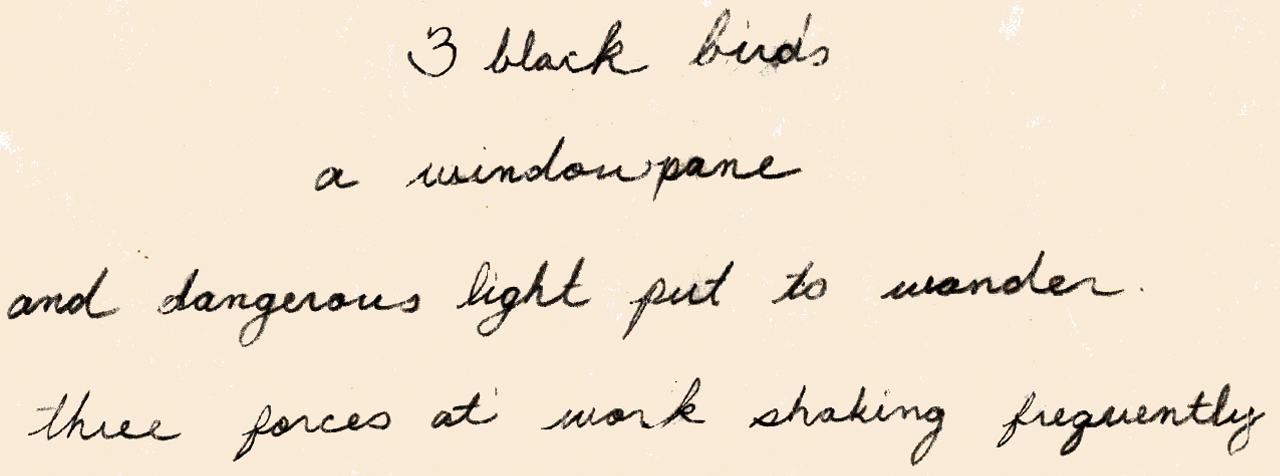 3 black birds
a windowpane
and dangerous light put to wander.
three forces at work shaking frequently